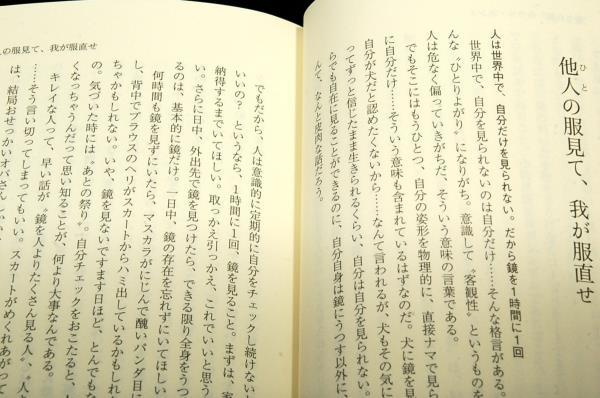 他人の服見て、我が服直せ
ひと
人は世界中で、自分だけを見られない。だから鏡を1時間に1回
世界中で、自分を見られないのは自分だけ……そんな格言がある。
んな〝ひとりよがり〟になりがち。意識して〝客観性〟というものを
人は危なく偏っていきがちだ、そういう意味の言葉である。
でもそこにはもうひとつ、自分の姿形を物理的に、直接ナマで見ら
に自分だけ……そういう意味も含まれているはずなのだ。犬に鏡を見
自分が犬だと認めたくないから……なんて言われるが、犬もその気に
ってずっと信じたまま生きられるくらい、自分は自分を見られない。
らでも自在に見ることができるのに、自分自身は鏡にうつす以外に、
んて、なんと皮肉な話だろう。
でもだから、人は意識的に定期的に自分をチェックし続けない
いいの?というなら、1時間に1回、鏡を見ること。まずは、家
納得するまでいてほしい。取っかえ引っかえ、これでいいと思う
い。さらに日中、外出先で鏡を見つけたら、できる限り全身をうつ
るのは、基本的に鏡だけ。一日中、鏡の存在を忘れずにいてほし
何時間も鏡を見ずにいたら、マスカラがにじんで醜いパンダ目に
し、背中でブラウスのヘリがスカートからハミ出しているかもし
ちゃかもしれない。いや、鏡を見ないですます日ほど、とんでもな
の。気づいた時には〝あとの祭り〟。自分チェックをおこたると、
くなっちゃうんだって思い知ることが、何より大事なんである。
キレイな人って、早い話が〝鏡を人よりたくさん見る人〟、人
……そう言い切ってしまってもいい。スカートがめくれあがって
は、結局おせっかいオバさん
人の服見て、我が服直せ